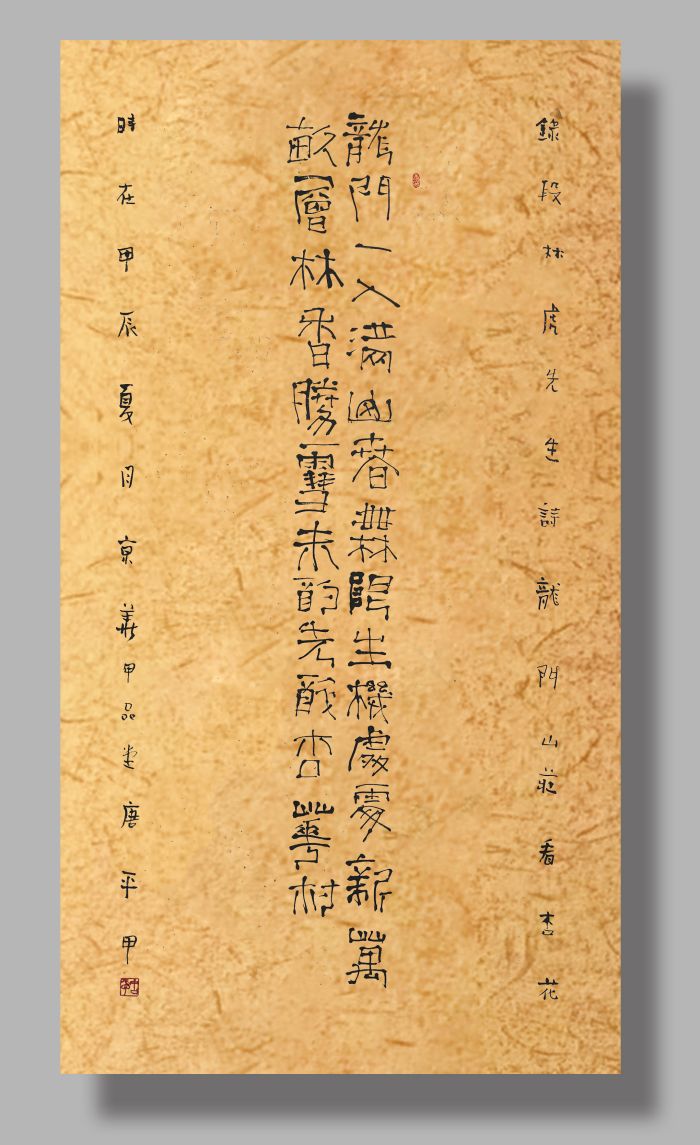 錄段林虎先生詩龍門山莊看杏花
龍門一入滿山春無限生機處處新萬
畝層林香勝雪未酌先酣杏華村
時在甲辰夏月京華甲品堂唐平甲